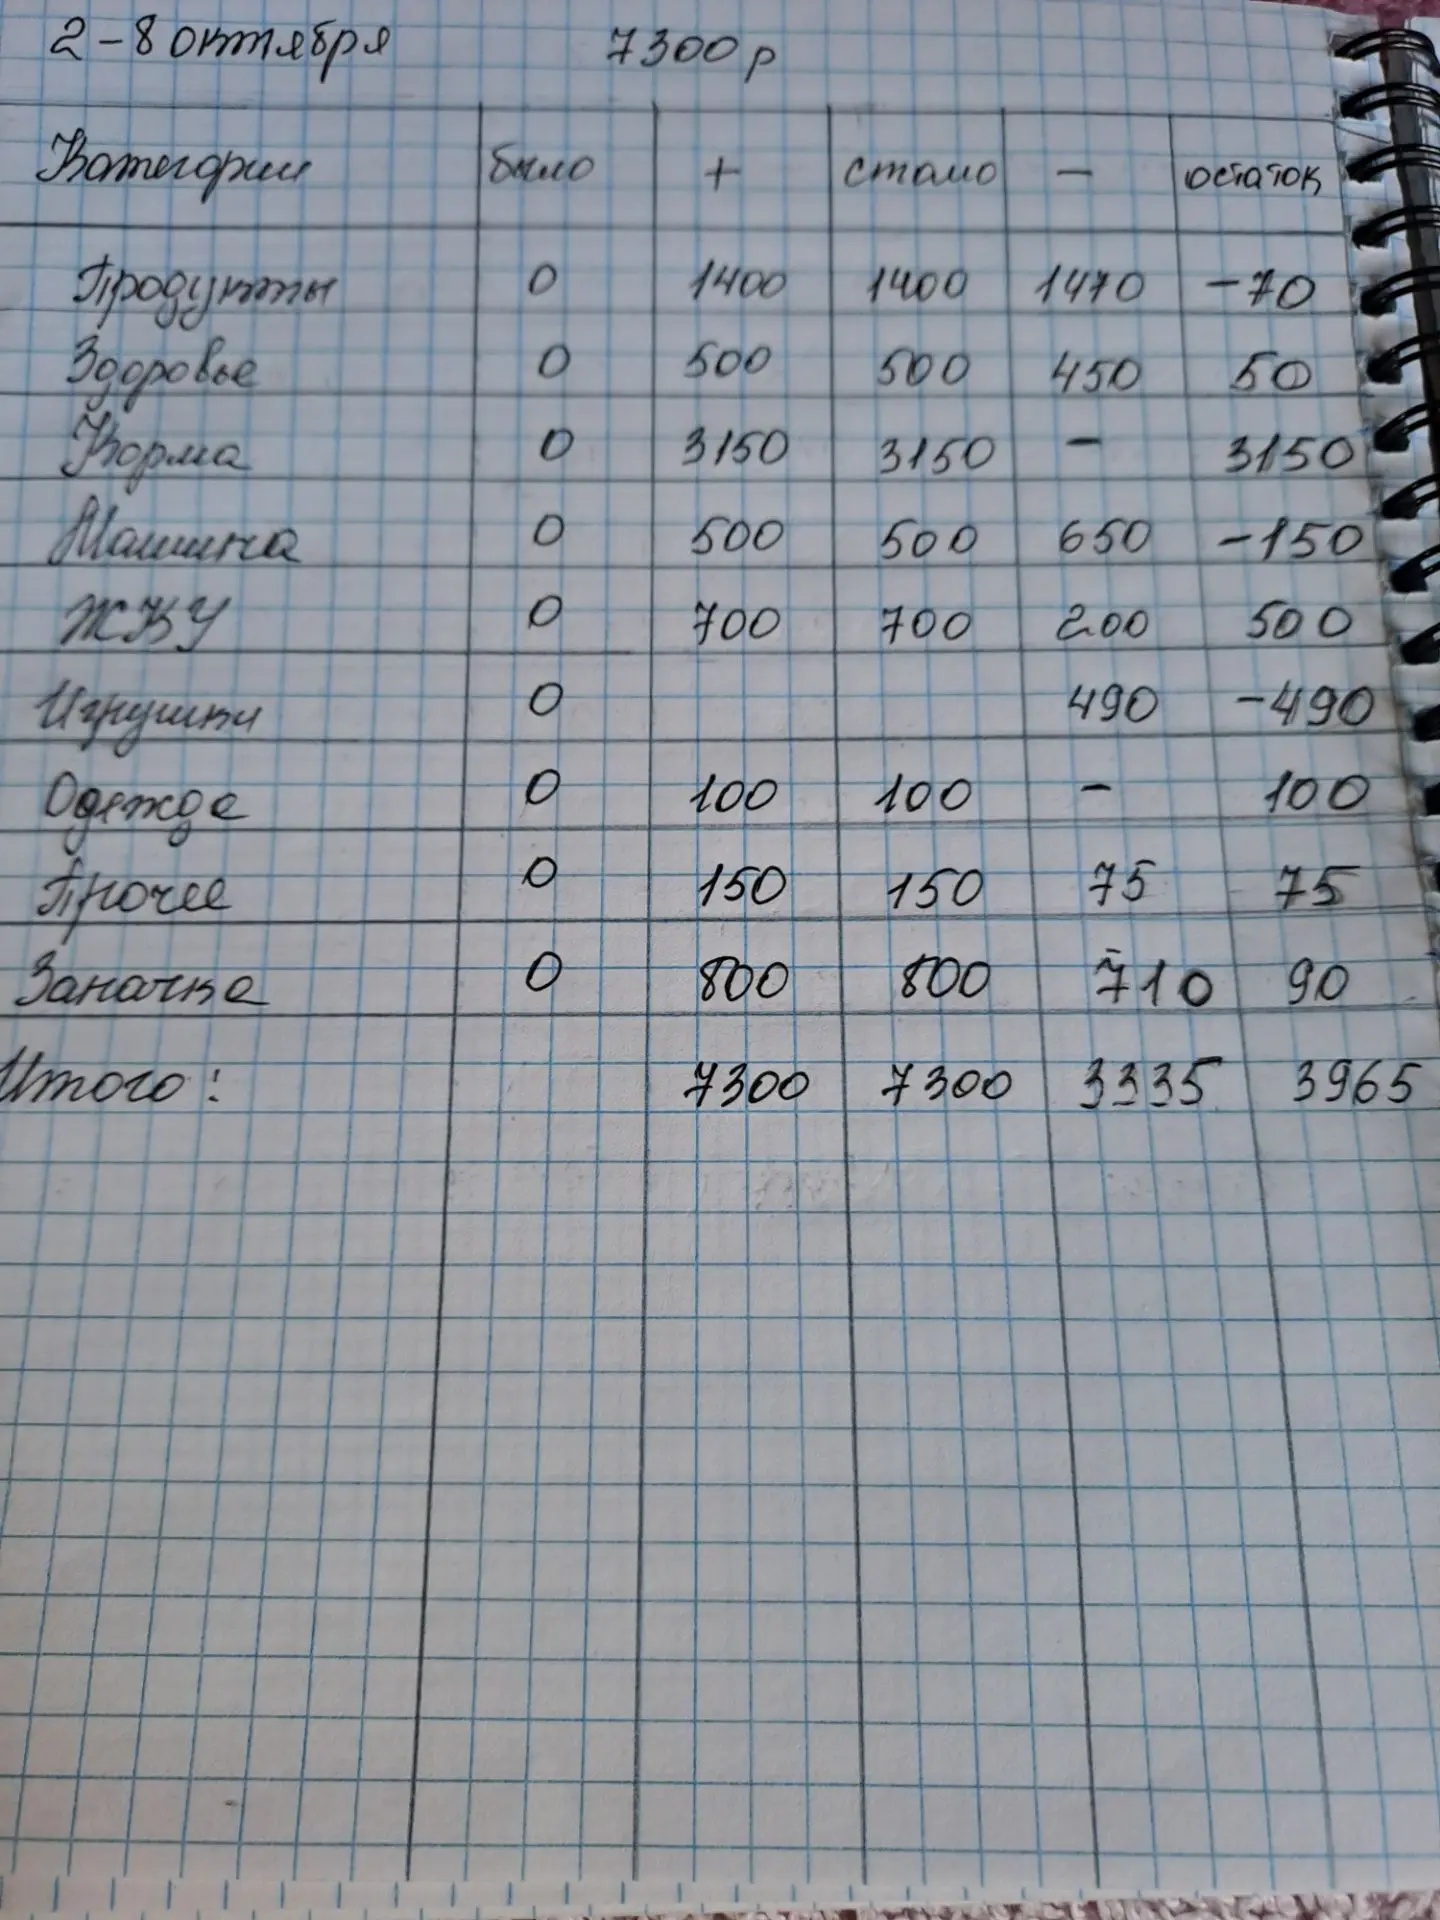 2-8 октября 7300р
Категории было + стало - остаток
Продукты 0 1400 1400 1470 -70
Здоровье 0 500 500 450 50
Корма 0 3150 3150 - 3150
Машина 0 500 500 650 -150
ЖКУ 0 700 700 200 500
Игрушки 0 490 -490
Одежда 0 100 100 - 100
Прочее 0 150 150 75 75
Заначка 0 800 800 -710 90
Итого: 7300 7300 3335 3965